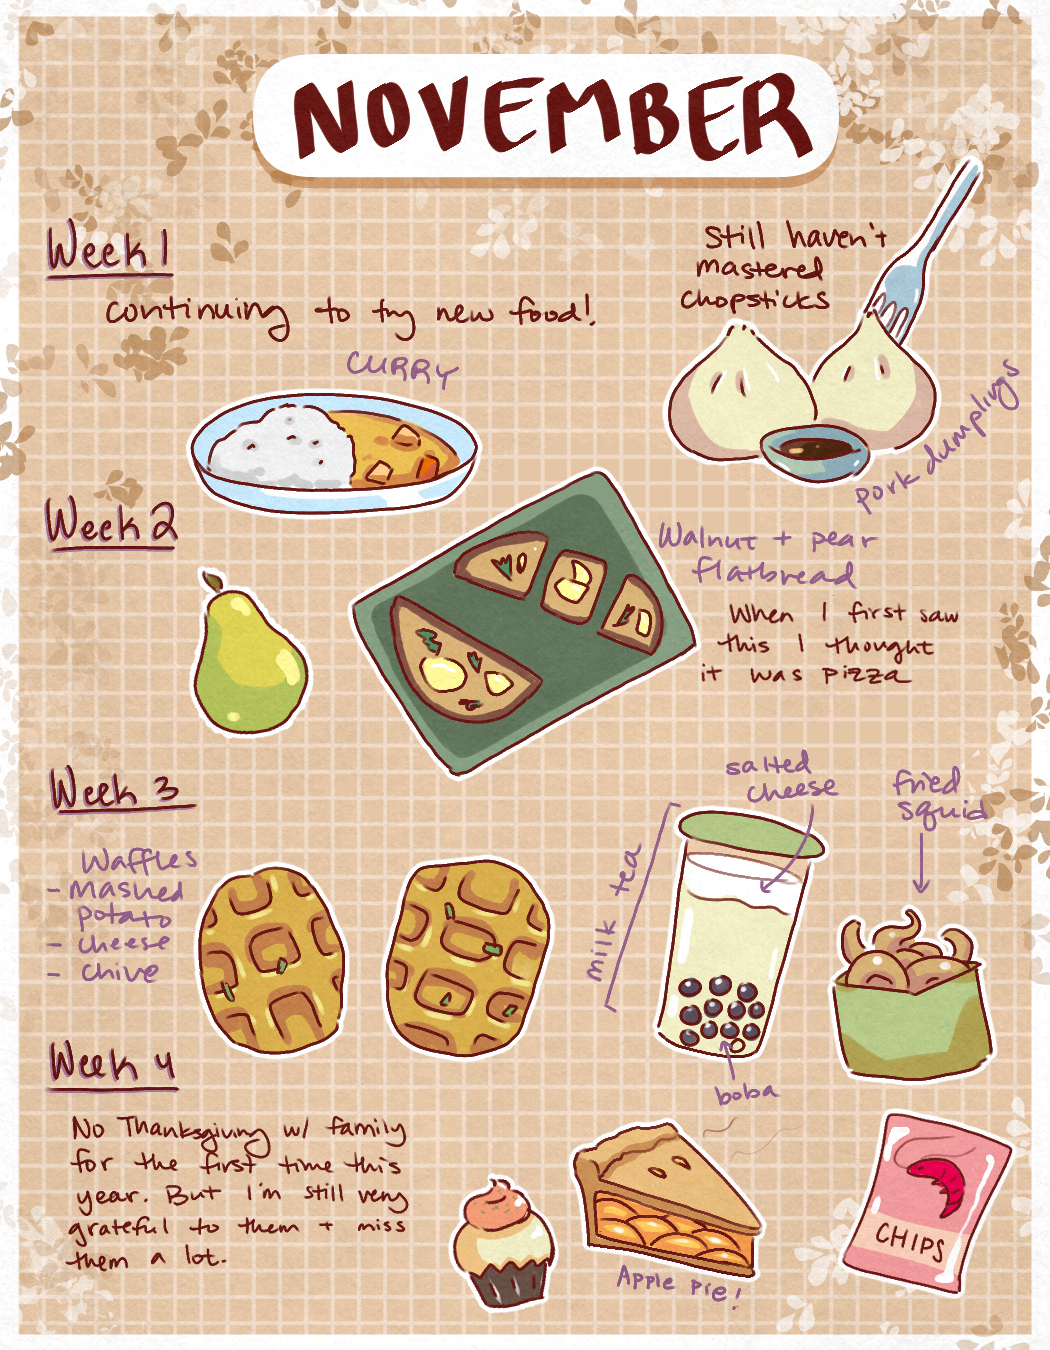 NOVEMBER
Week 1
continuing to try new food!
CURRY
Still haven't
mastered
chopsticks
pork dumplings
Week 2
Walnut + pear
flatbread
When I first saw
this I thought
it was pizza
Week 3
Waffles
- Mashed
potato
- cheese
- chive
milk tea
salted
cheese
boba
fried
squid
Week 4
No Thanksgiving w/ family
for the first time this
year. But I'm still very
grateful to them + miss
them a lot.
Apple pie!
CHIPS